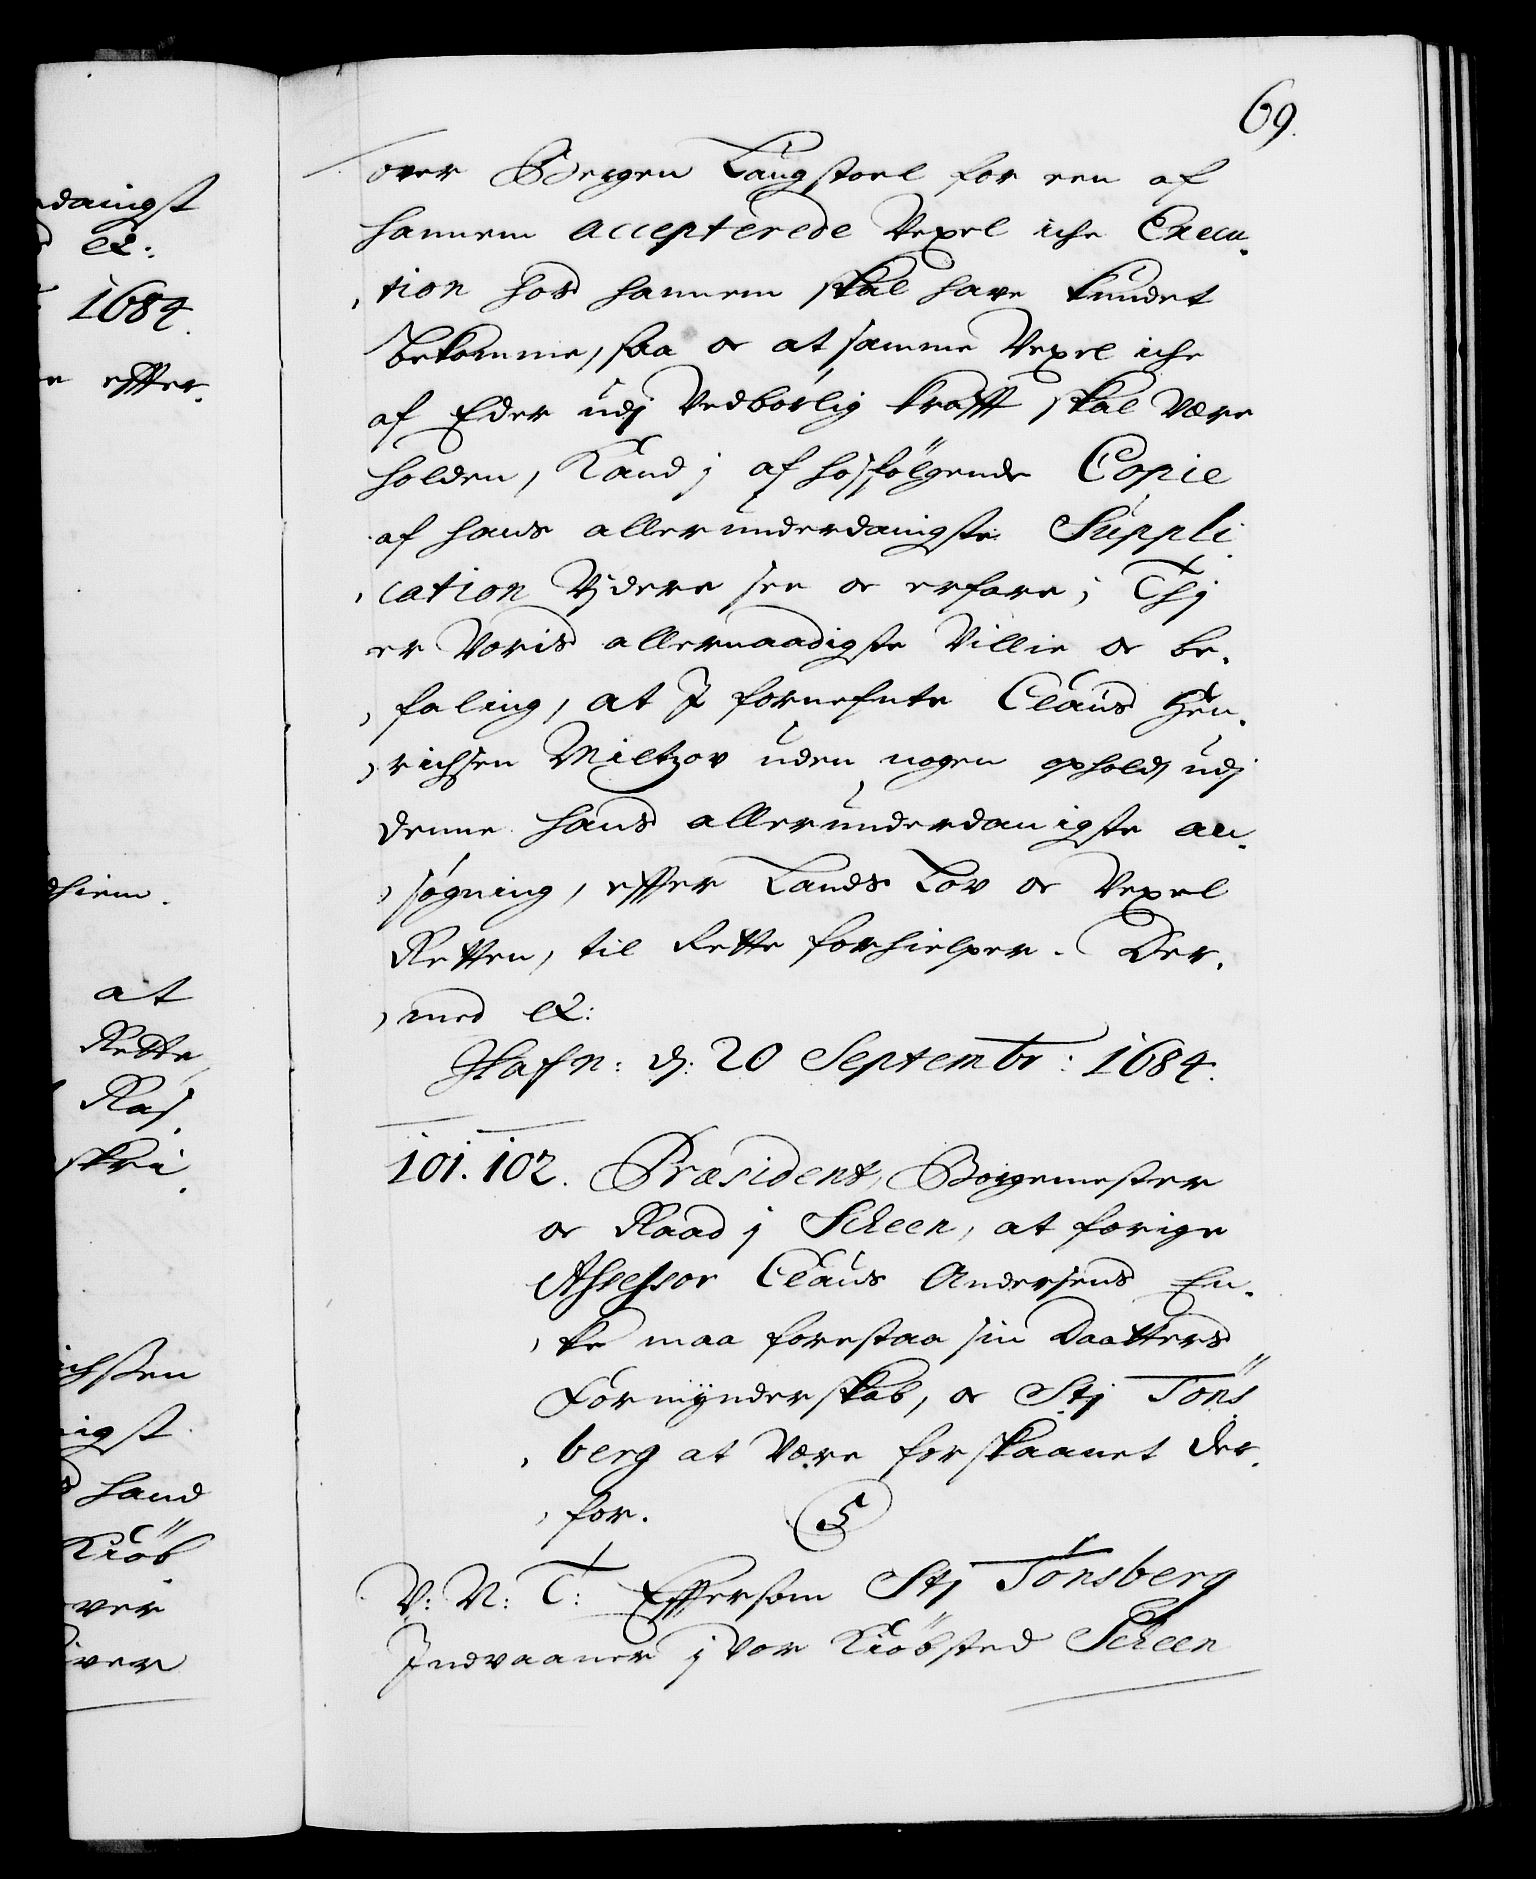 69.
over Bergen Laugstoel for een af
hannem accepterede Vexel iche Execu-
tion hos hannem skal have kundet
bekomme, saa oc at samme Vexel iche
af Eder udj Vedbörlig krafft skal Være
holden, Kand j af hosfölgende Copie
af hans allerunderdanigste Suppli-
cation Vjdere see oc erfare; Thj
er Voris allernaadigste Villie oc be-
faling, at I fornefnte Claus Hen-
richsen Miltzov uden nogen ophold udj
denne hans allerunderdanigste an-
søgning, effter Lands Lov oc Vexel
Retten, til Rette forhielper. Der-
med etc:
Hafn: d: 20 Septembr: 1684.
101. 102. Præsident, Borgemester
oc Raad j Scheen, at forige
Assessor Claus Andersens En-
ke maa forestaa sin Daatters
Formÿnderskab, oc Stj Töns
berg at Være forskaanet der-
for.
V: N: T: Effersom Stj Tönsberg
Indvaaner j vor Kiöbsted Scheen
danigst
etc:
1684.
effter.
hiem.
at
Rette
Raj
skri
ichssen
nigst
hand
Kiöb
ver
iver